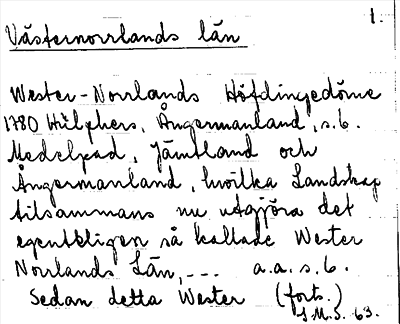 1.
Västernorrlands län
Wester-Norrlands Höfdingedöme
1780 Hülphers, Ångermanland, s. 6.
Medelpad, Jämtland och
Ångermanland, hvilka Landskap
tilsammans nu utgjöra det
egentbligen så kallade Wester
Norrlands Län, --- a.a. s. 6.
Sedan detta Wester (forts.)
J.M.S. 63.